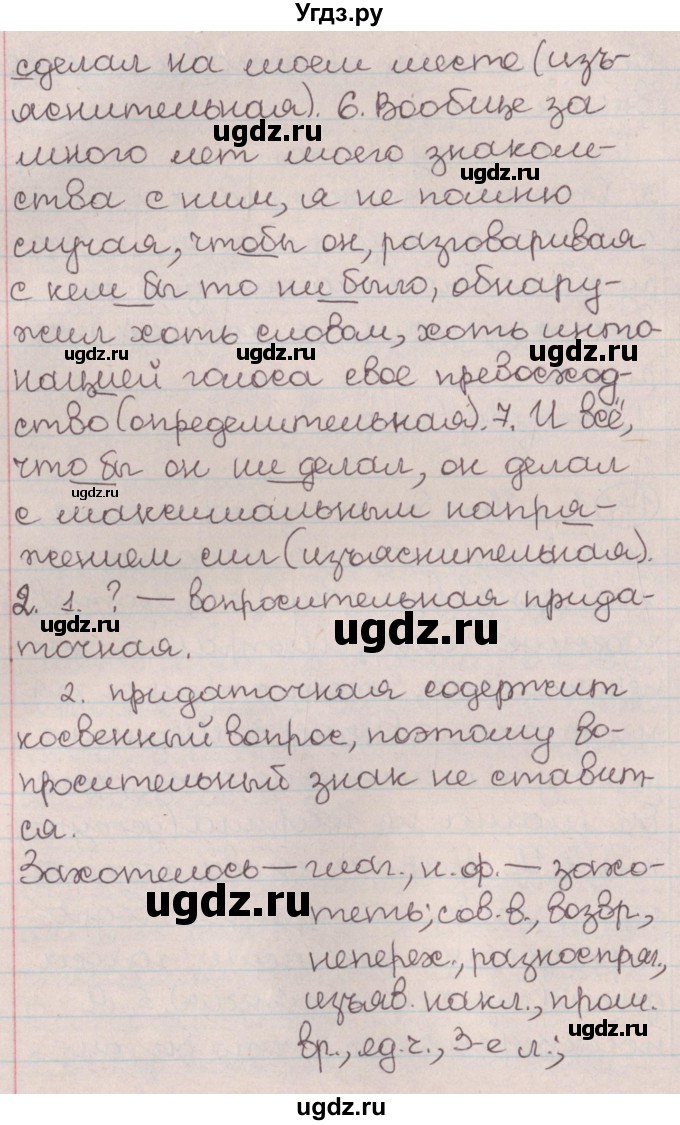 Угдз.ру
сделал на моем месте (изъ-
яснительная). 6. Вообще за
ugdz.ru
много лет моего знаком-
ugdz.ru
ства с ним, я не помню
случая, чтобы он, разговаривая
с кем бы то ни было, обнару-
жил хоть словом, хоть инто-
ugdz.ru ugdz.ru ugdz.ru
нацией голоса свое превосход-
ство (определительная). 7. И всё,
что бы он ни делал, он делал
ugdz.ru
с максимальным напря-
жением сил (изъяснительная).
2. 1. ? — вопросительная прида-
ugdz.ru ugdz.ru
точная.
2. придаточная содержит
косвенный вопрос, поэтому во-
просительный знак не ставит-
ся.
Захотелось — глаг., н.ф. — захо-
ugdz.ru
теть; сов. в., возвр.,
неперех., разноспряг.,
изъяв. накл., прош.
ugdz.ru
вр., ед.ч., 3-е л.;
ugdz.ru